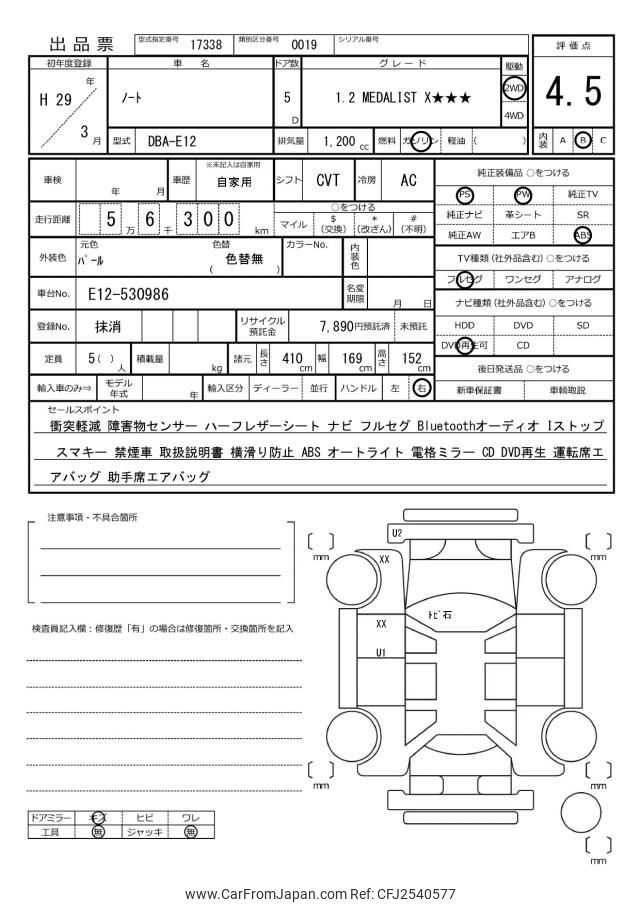 出品票 型式指定番号 17338 類別区分番号 0019 シリアル番号
評価点
4.5
内装 A B C
初年度登録 車名 ドア数 グレード 駆動
H 29 年 3 月
ノート
5 D
1.2 MEDALIST X★★★
2WD
4WD
型式 DBA-E12 排気量 1,200 cc 燃料 ガソリン 軽油 ( )
車検 年 月 車歴 ※未記入は自家用 自家用 シフト CVT 冷房 AC
走行距離 5 万 6 千 3 0 0 km
○をつける
マイル $ (交換) * (改ざん) # (不明)
外装色 元色 パール 色替 ( 色替無 ) カラーNo. 内装色
車台No. E12-530986 名変期限 月 日
登録No. 抹消 リサイクル預託金 7,890円預託済 未預託
定員 5 ( ) 人 積載量 kg 諸元 長さ 410 cm 幅 169 cm 高さ 152 cm
輸入車のみ⇒ モデル年式 年 輸入区分 ディーラー 並行 ハンドル 左 右
純正装備品 ○をつける
PS PW 純正TV
純正ナビ 革シート SR
純正AW エアB ABS
TV種類 (社外品含む) ○をつける
フルセグ ワンセグ アナログ
ナビ種類 (社外品含む) ○をつける
HDD DVD SD
DVD再生可 CD
後日発送品 ○をつける
新車保証書 車輌取説
セールスポイント
衝突軽減 障害物センサー ハーフレザーシート ナビ フルセグ Bluetoothオーディオ Iストップ
スマキー 禁煙車 取扱説明書 横滑り防止 ABS オートライト 電格ミラー CD DVD再生 運転席エ
アバッグ 助手席エアバッグ
注意事項・不具合箇所
検査員記入欄：修復歴「有」の場合は修復箇所・交換箇所を記入
ドアミラー キズ ヒビ ワレ
工具 無 ジャッキ 無
U2
XX
トビ石
XX
U1
mm
mm
mm
mm
mm
www.CarFromJapan.com Ref: CFJ2540577